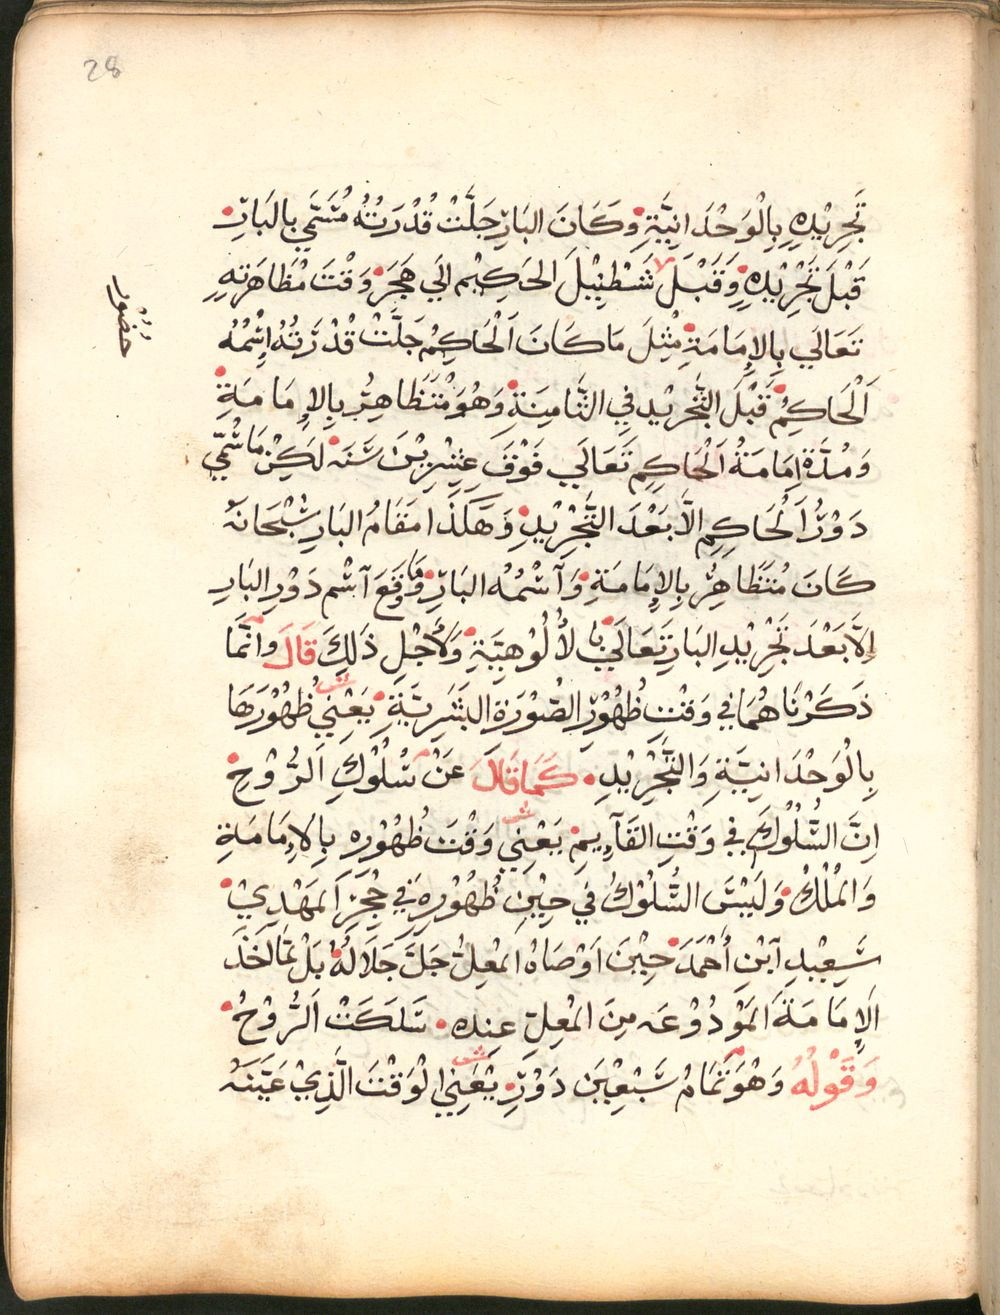 28
تَجرِيْدِهِ بِالْوَحْدَانِيَّةِ وَكَانَ البَارِّ جَلَّتْ قُدْرَتُهُ مُتَسَمِّي بِالبَارِّ
قَبْلَ تَجْرِيْدِهِ وَقَبْلَ شَطْنِيْلَ الحَكِيْم الَي هَجَرَ وَقْتَ مُظَاهَرَتِهِ
حضور
تَعَالَي بِالاِمَامَةِ مِثْلَ مَا كَانَ اَلْحَاكِمْ جَلَّتْ قُدْرَتُهُ اِسْمُهُ
اَلْحَاكِمْ قَبْلَ التَّجْرِيْدِ فِي الثَّامِنَةِ وَهُوَ مُتَظَاهِرٌ بِالاِمَامَةِ
وَمُدَّةِ اِمَامَةُ اَلْحَاكِمِ تَعَالَي فَوْقَ عِشْرِيْنَ سَنَه لَكِنْ مَا سُمِّي
دَوْرُ اَلْحَاكِمِ الَّا بَعْدَ التَّجْرِيْدِ وَهَكَذَا مَقَامُ البَارِ سُبْحَانَهُ
كَانَ مُتَظَاهِرٌ بِالاِمَامَةِ وَآسْمُهُ البَارِّ وَمَا وَقَعَ آسْم دَوْرِ البَارِ
اِلَّا بَعْدَ تَجْرِيْدِ البَارِ تَعَالَي بِالأُلُوْهِيَّةِ وَلأَجْلِ ذَلِكَ قَالَ وانَّمَا
ذَكَرْنَاهُمَا فِي وَقْتِ ظُهُوْرِ الصُّوْرَةِ البَشَرِيَّةِ يَعْنِي ظُهُوْرَهَا
بِالْوَحْدَانِيَّةِ وَالتَّجْرِيْدِ كَمَا قَالَ عَنْ سُلُوْكِ اَلرُّوْحِ
اِنَّ السُّلُوْكَ فِي وَقْتِ القَآيِمِ يَعْنِي وَقْتَ ظُهُوْرِهِ بِالاِمَامَةِ
وَالمُلْكْ وَلَيْسَ السُّلُوْكُ في حِيْنِ ظُهُوْرِهِ فِي حُجْرِ اَلمَهْدِيْ
سَعِيْدِ آبْنِ أَحْمَدَ حِيْنَ اَوْصَاهُ المْعِلُّ جَلَّ جَلَالُهُ بَلْ لمَّا اخَذَ
اَلاِمَامَةَ اَلمَوْدُوْعَه مِنَ المْعِلِّ عِنده سَلَكَتْ اَلرُّوْحُ
وَقَوْلُهُ وَهْوَ تَمَامُ سَبْعِيْنَ دَوْرٍ يَعْنِي الْوَقْتَ الَّذِيْ عَيَّنَهُ